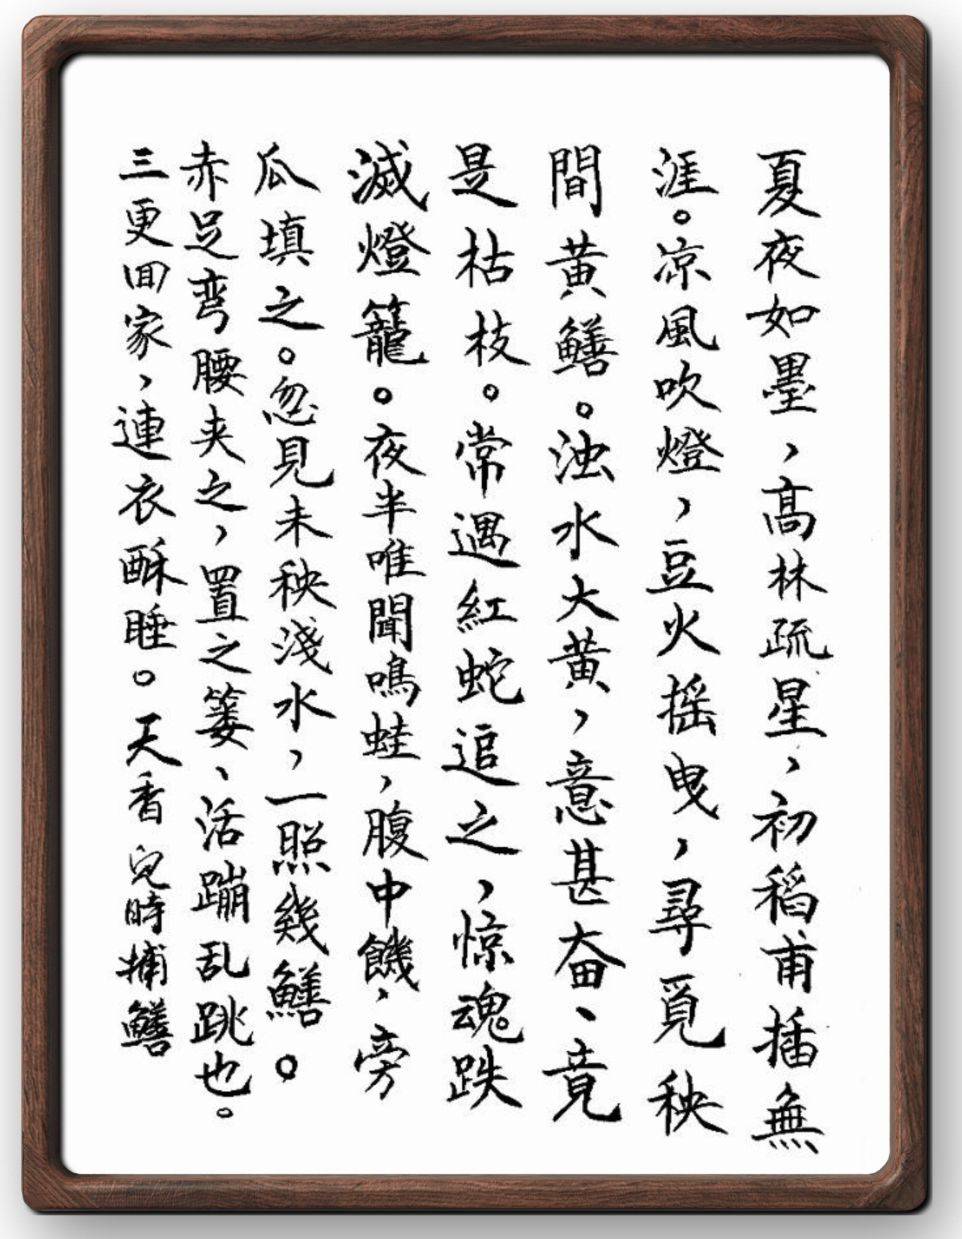 夏夜如墨，高林疏星，初稻甫插無
涯。凉風吹燈，豆火摇曳，尋覓秧
間黄鱔。浊水大黄，意甚奋、竟
是枯枝。常遇紅蛇追之，惊魂跌
滅燈籠。夜半唯聞鳴蛙，腹中饑，旁
瓜填之。忽見未秧淺水，一照幾鱔。
赤足弯腰夹之，置之篓、活蹦乱跳也。
三更回家，連衣酥睡。天香兒時捕鱔